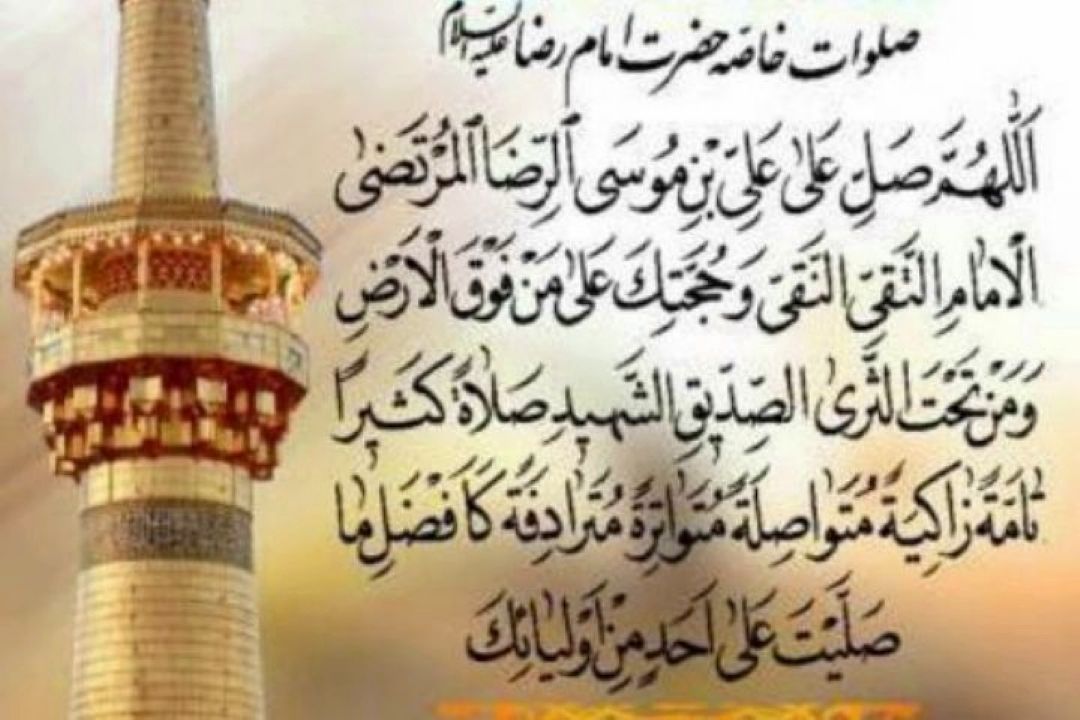 صلوات خاصه حضرت امام رضا علیه السلام
اَللّٰهُمَّ صَلِّ عَلىٰ عَلِىِّ بْنِ مُوسَى ٱلرِّضَا ٱلْمُرْتَضىٰ
الْاِمٰامِ التَّقِىِّ النَّقِىِّ وَحُجَّتِكَ عَلىٰ مَنْ فَوْقَ الْاَرْضِ
وَمَنْ تَحْتَ الثَّرىٰ الصِّدّيقِ الشَّهيدِ صَلاٰةً كَثيرًا
تٰامَّةً زٰاكِيَةً مُتَوٰاصِلَةً مُتَوٰاتِرَةً مُتَرٰادِفَةً كَاَفْضَلِ مٰا
صَلَّيْتَ عَلىٰ اَحَدٍ مِنْ اَوْلِيٰائِكَ